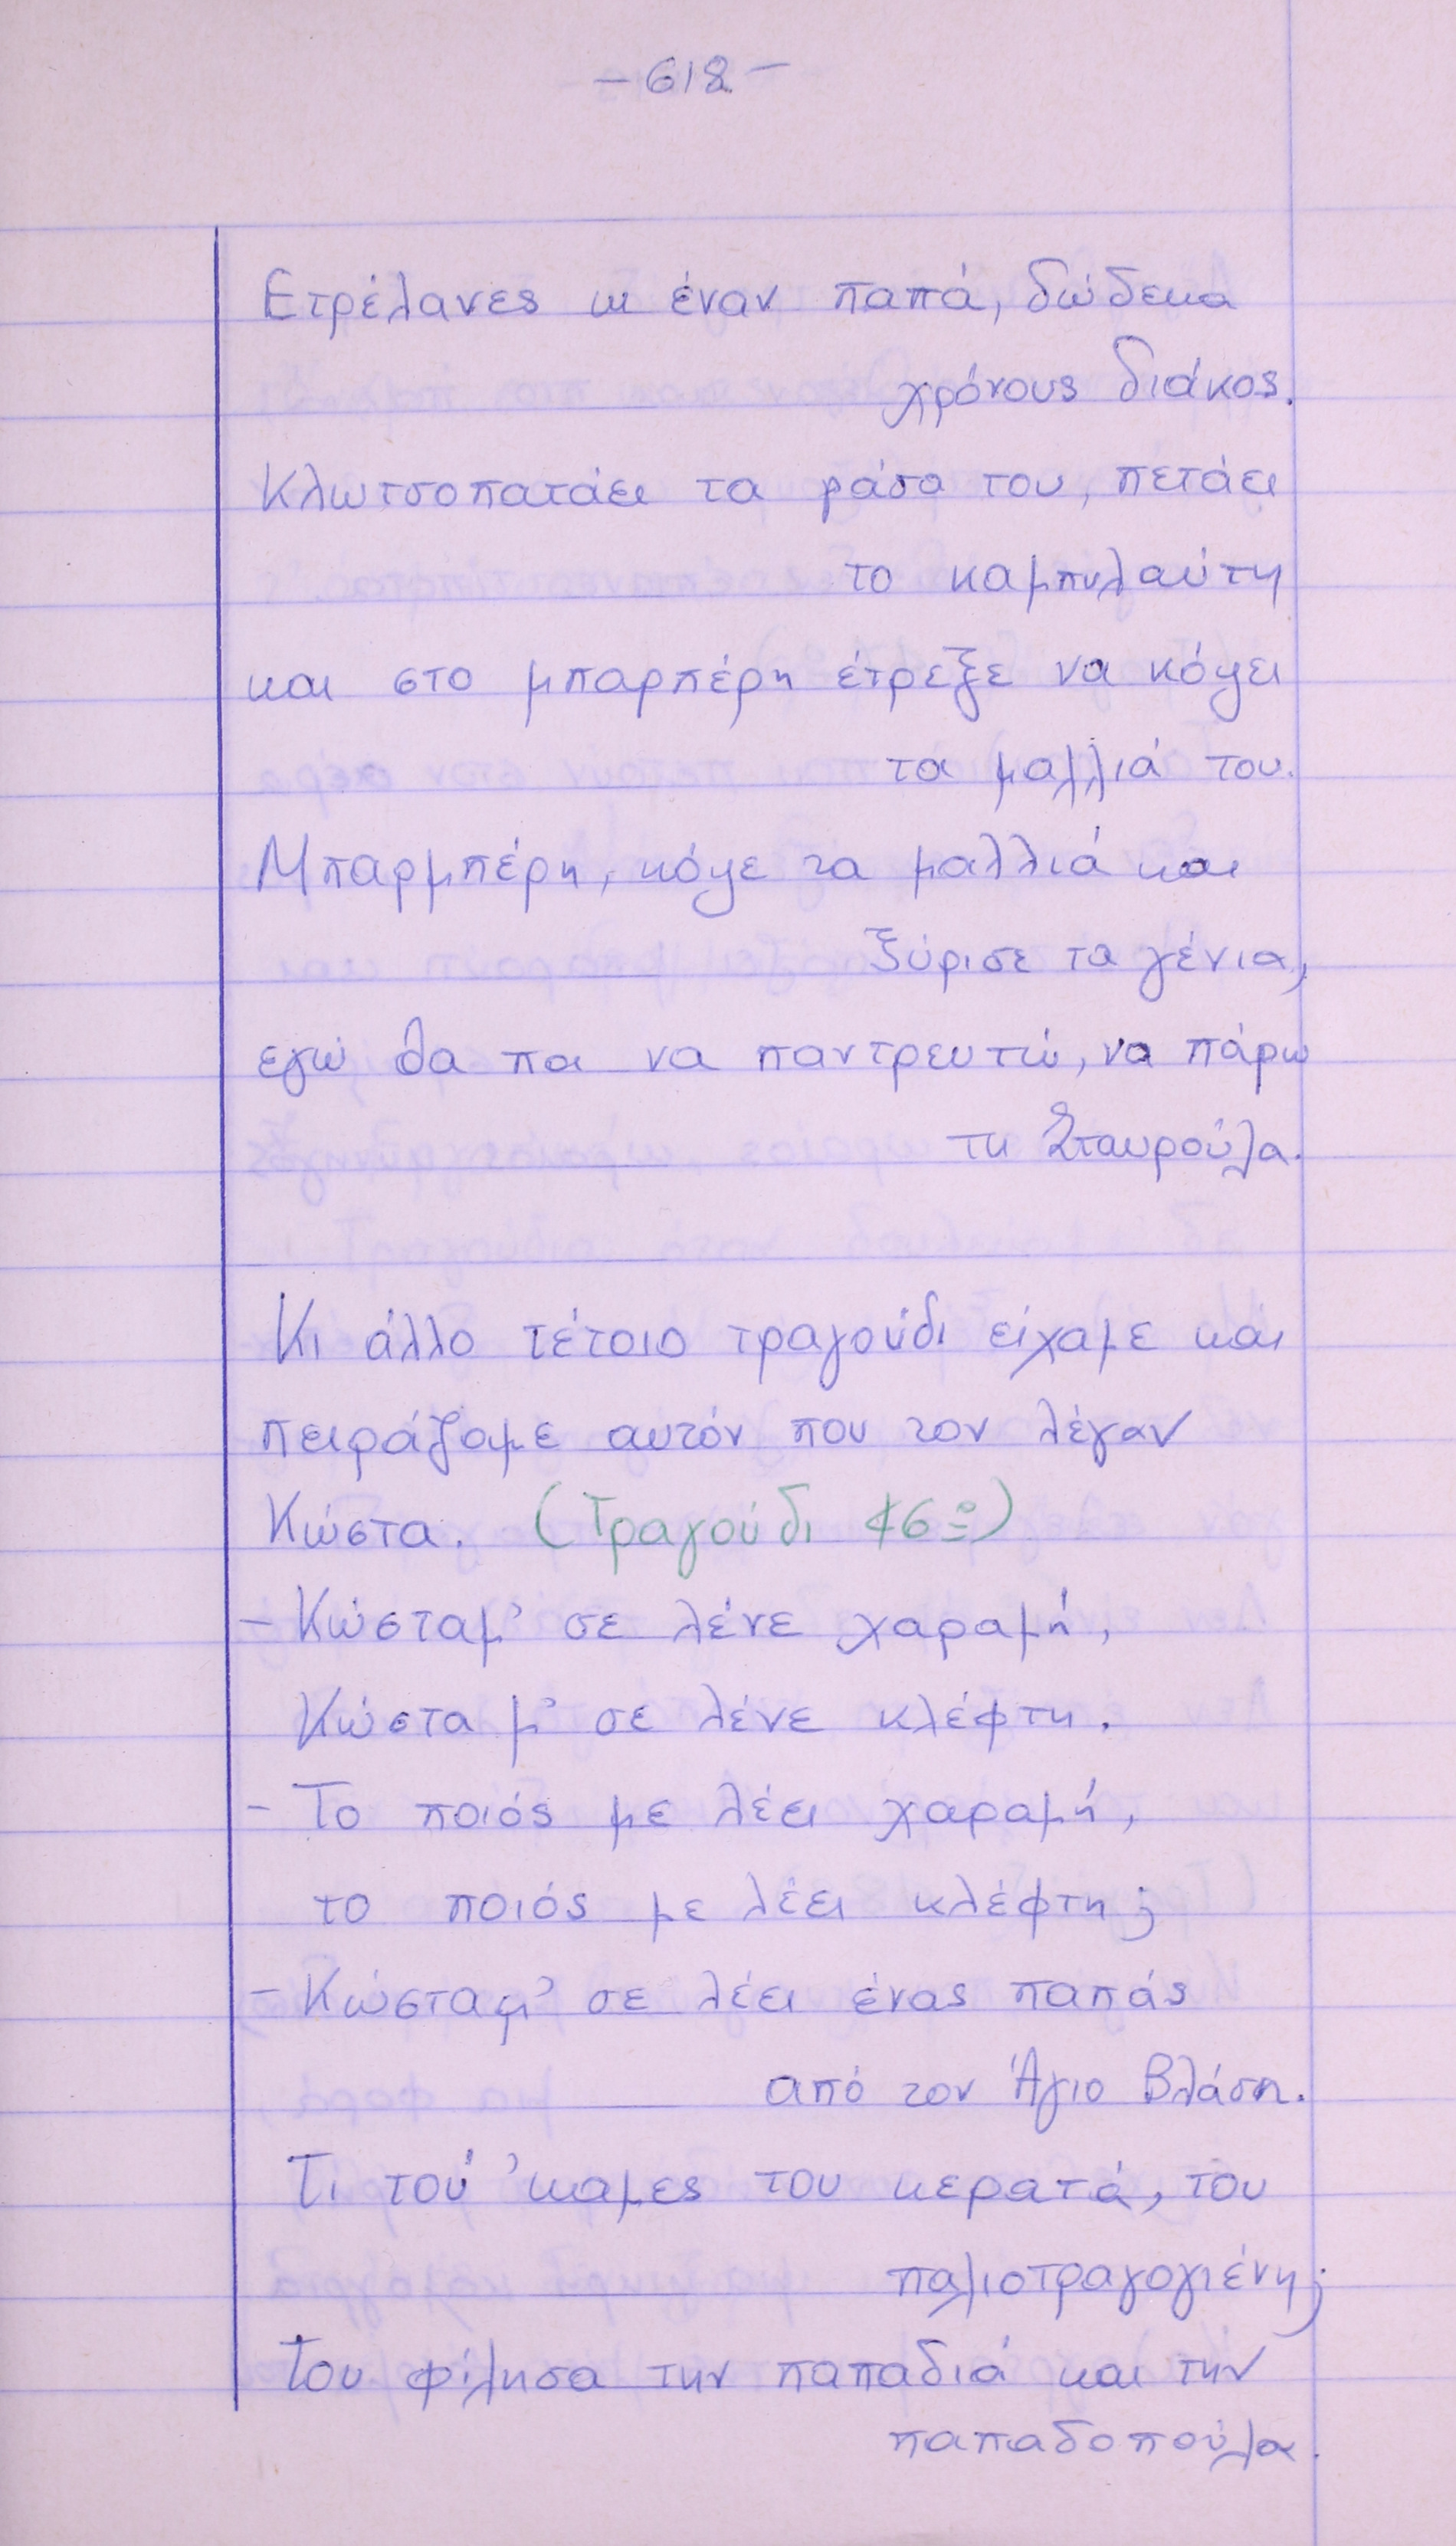 -618-
Ετρέλανες κι έναν παπά, δώδεκα
χρόνους διάκος.
Κλωτσοπατάει τα ράσα του, πετάει
το καμπυλαύτη
και στο μπαρπέρη έτρεξε να κόψει
τα μαλλιά του.
Μπαρμπέρη, κόψε τα μαλλιά και
ξύρισε τα γένια,
εγώ θα πα να παντρευτώ, να πάρω
τη Σταυρούλα.
Κι άλλο τέτοιο τραγούδι είχαμε και
πειράζαμε αυτόν που τον λέγαν
Κώστα. (Τραγούδι 16º)
- Κώσταμ' σε λένε χαραμή,
Κώστα μ' σε λένε κλέφτη.
- Το ποιός με λέει χαραμή,
το ποιός με λέει κλέφτη;
- Κώσταμ' σε λέει ένας παπάς
από τον Άγιο Βλάση.
Τι τού 'καμες του κερατά, του
παλιοτραγογιένη;
Του φίλησα την παπαδιά και την
παπαδοπούλα.